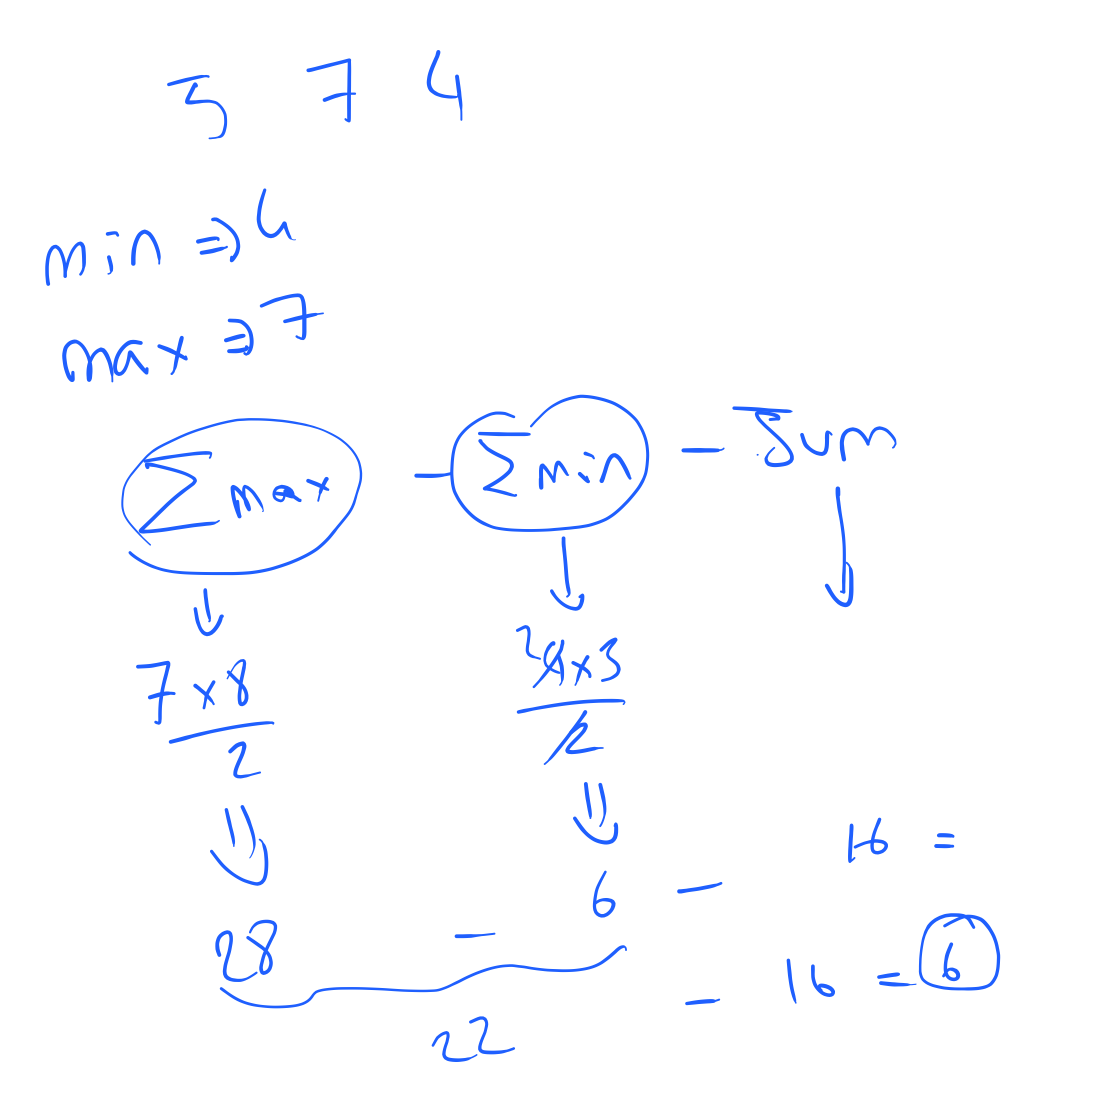 5 7 4
min ⇒ 4
max ⇒ 7
∑ max - ∑ min - Sum
↓ ↓ ↓
7 x 8 / 2
3 4 x 3 / 2
⇓ ⇓
28 - 6 - 16 =
22 - 16 = 6